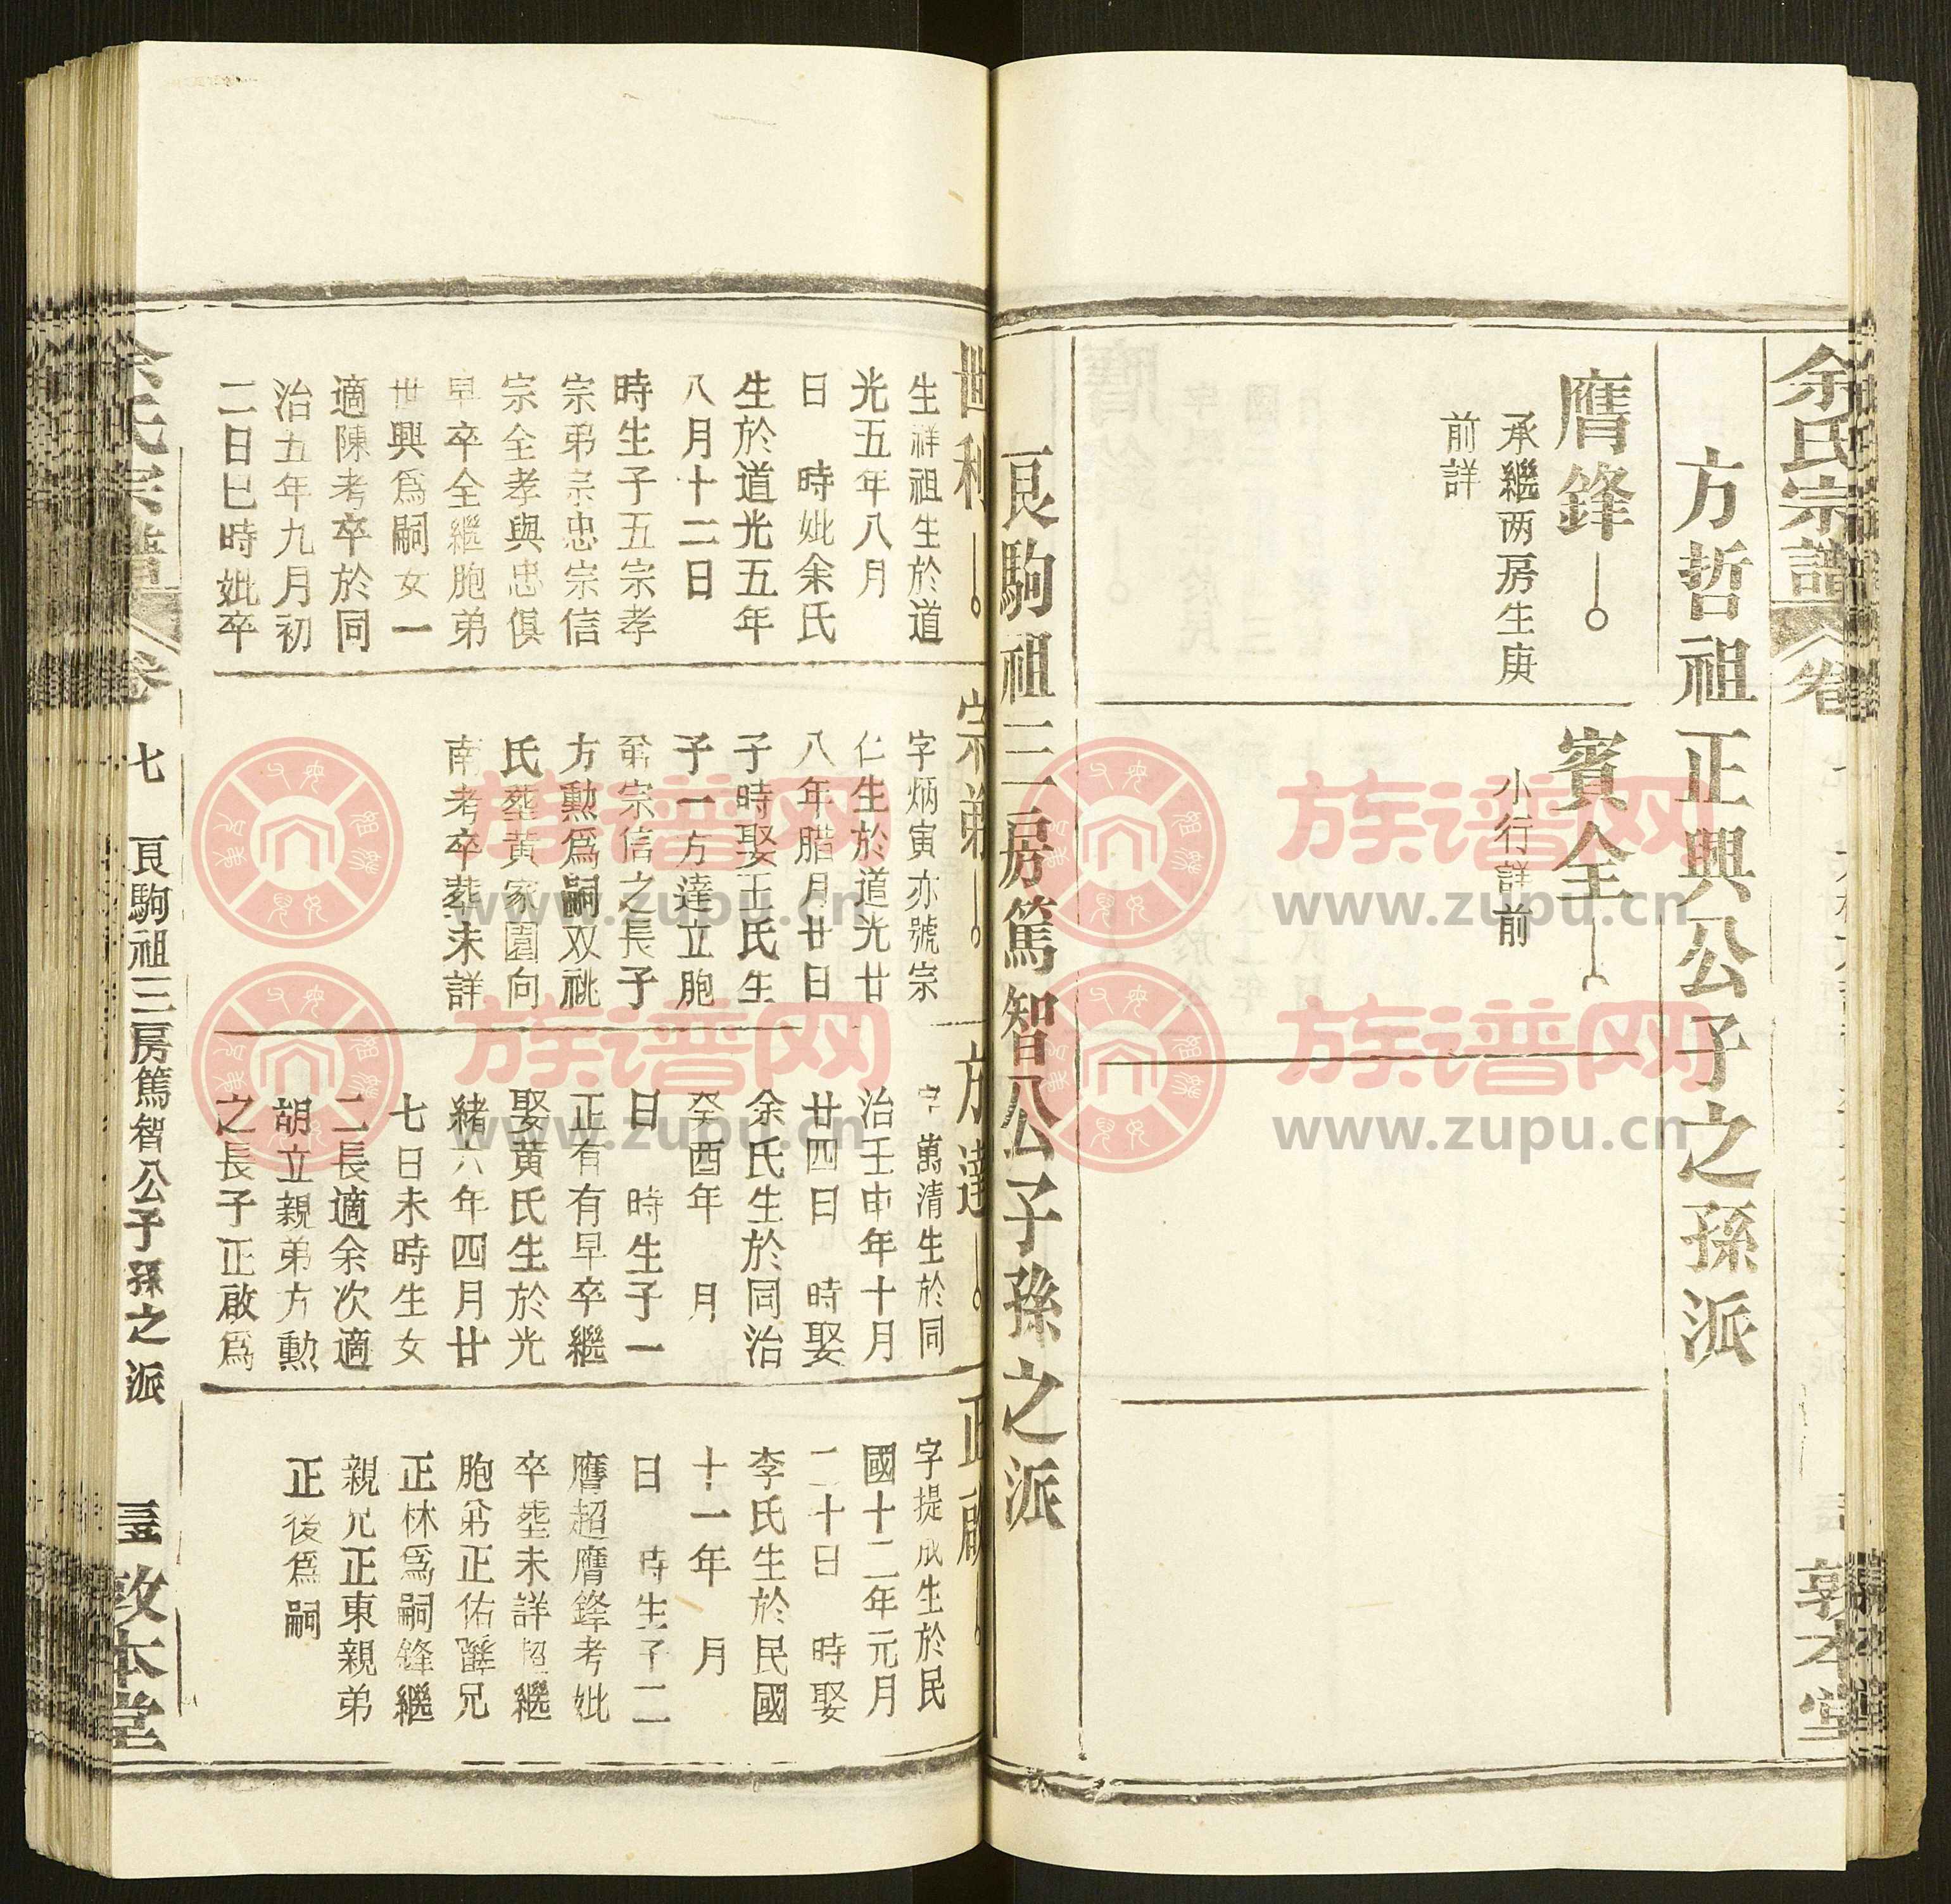 余氏宗譜
卷
敦本堂
方哲祖正興公子之孫派
膺鋒
承繼两房生庚
前詳
賓全
小行詳前
良駒祖三房篤智公子孫之派
世利
生祥祖生於道
光五年八月
日 時妣余氏
生於道光五年
八月十二日
時生子五宗孝
宗弟宗忠宗信
宗全孝與忠俱
早卒全繼胞弟
世興爲嗣女一
適陳考卒於同
治五年九月初
二日巳時妣卒
宗弟
字炳寅亦號宗
仁生於道光廿
八年腊月廿日
子時娶王氏生
子一方達立胞
弟宗信之長子
方勳爲嗣双祧
氏塟黄家園向
南考卒塟未詳
方達
字萬清生於同
治壬申年十月
廿四日 時娶
余氏生於同治
癸酉年 月
日 時生子一
正有有早卒繼
娶黄氏生於光
緒六年四月廿
七日未時生女
二長適余次適
胡立親弟方勳
之長子正啟爲
正啟
字提成生於民
國十二年元月
二十日 時娶
李氏生於民國
十一年 月
日 時生子二
膺超膺鋒考妣
卒塟未詳超繼
胞弟正佑鋒兄
正林爲嗣鋒繼
親兄正東親弟
正後爲嗣
余氏宗譜
卷
七
良駒祖三房篤智公子孫之派
敦本堂
族谱网
www.zupu.cn
族谱网
www.zupu.cn
族谱网
www.zupu.cn
族谱网
www.zupu.cn